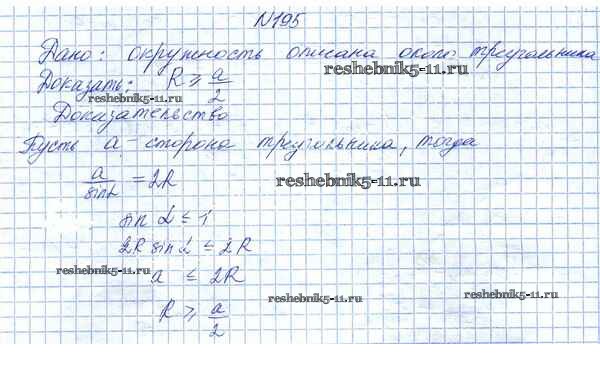 №195
Дано: окружность описана около треугольника
reshebnik5-11.ru
Доказать: R ≥ a/2
reshebnik5-11.ru
Доказательство
Пусть a - сторона треугольника, тогда
a/sinα = 2R
reshebnik5-11.ru
sin α ≤ 1
2R sin α ≤ 2R
reshebnik5-11.ru
a ≤ 2R
reshebnik5-11.ru
reshebnik5-11.ru
R ≥ a/2